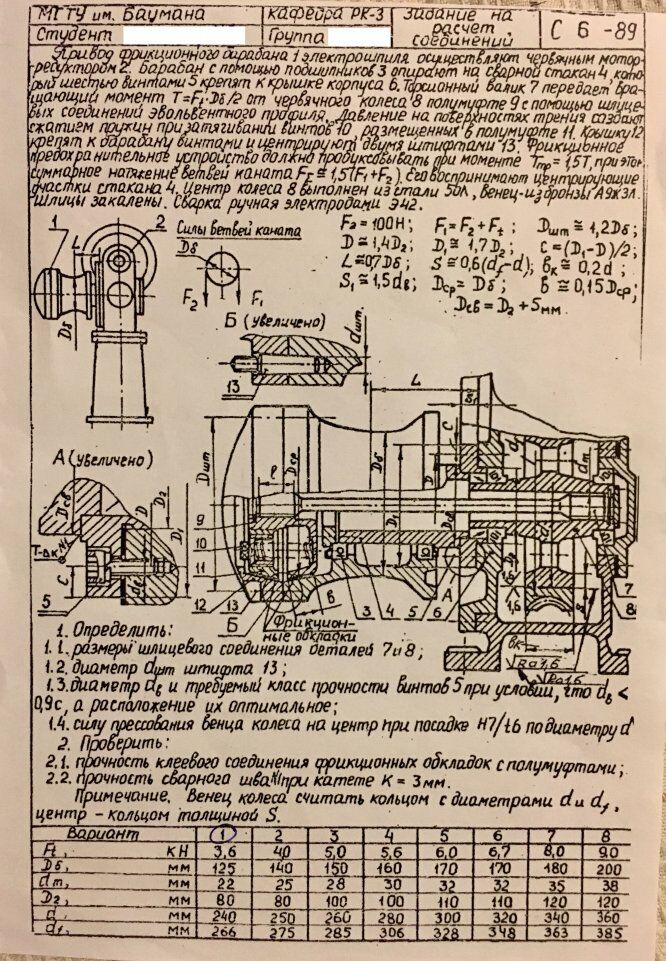 МГТУ им. Баумана
Кафедра РК-3
Задание на расчет соединений
С 6 -89
Студент
Группа
Привод фрикционного барабана 1 электрошпиля осуществляют червячным мотор-
редуктором 2. Барабан с помощью подшипников 3 опирают на сварной стакан 4, кото-
рый шестью винтами 5 крепят к крышке корпуса 6. Торсионный валик 7 передает вра-
щающий момент T=Ft·Dб/2 от червячного колеса 8 полумуфте 9 с помощью шлице-
вых соединений эвольвентного профиля. Давление на поверхностях трения создают
сжатием пружин при затягивании винтов 10, размещенных в полумуфте 11. Крышку 12
крепят к барабану винтами и центрируют двумя штифтами 13. Фрикционное
предохранительное устройство должно пробуксовывать при моменте Tтр = 1,5T, при этом
суммарное натяжение ветвей каната FΣ ≅ 1,5(F1+F2). Его воспринимают центрирующие
участки стакана 4. Центр колеса 8 выполнен из стали 50Л, венец-из бронзы А9Ж3Л.
Шлицы закалены. Сварка ручная электродами Э42.
F2=100Н; F1=F2+Ft; Dшт≅1,2Dб;
D≅1,4D2; D1≅1,7D2; C=(D1-D)/2;
L≅0,7Dб; S≅0,6(df-d); вк≅0,2d;
S1≅1,5dв; Dср=Dб; в≅0,15Dср;
Dсв=D2+5мм.
1
L
2
Dб
Силы ветвей каната
Dб
F2
F1
Б (увеличено)
dшт.
13
L
А (увеличено)
Dсв
D
D2
D1
T-вк
C
dв
5
Dшт
l
Dср
Dб
D1
C
D
Dсв
dт
9
10
11
12
13
Б
Фрикцион-
ные обкладки
в
3
4
5
А
6
7
8
вк
1,6
Ra1,6
Ra1,6
1. Определить:
1.1. размеры шлицевого соединения деталей 7 и 8;
1.2. диаметр dшт штифта 13;
1.3. диаметр dв и требуемый класс прочности винтов 5 при условии, что dв <
0,9с, а расположение их оптимальное;
1.4. силу прессования венца колеса на центр при посадке H7/t6 по диаметру d
2. Проверить:
2.1. прочность клеевого соединения фрикционных обкладок с полумуфтами;
2.2. прочность сварного шва при катете К = 3мм.
Примечание. Венец колеса считать кольцом с диаметрами d и df,
центр - кольцом толщиной S.
Вариант 1 2 3 4 5 6 7 8
Ft, кН 3,6 4,0 5,0 5,6 6,0 6,7 8,0 9,0
Dб, мм 125 140 150 160 170 170 180 200
dт, мм 22 25 28 30 32 32 35 38
D2, мм 80 80 100 100 110 110 120 120
d, мм 240 250 260 280 300 320 340 360
df, мм 266 275 285 306 328 348 363 385